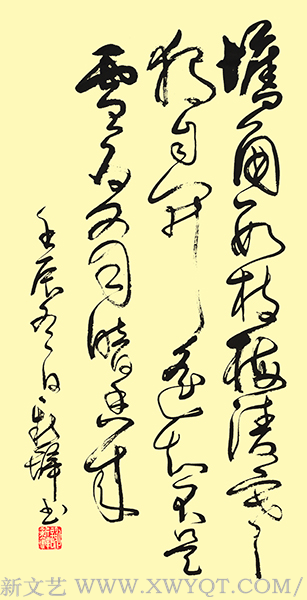 墙角数枝梅凌寒
独自开遥知不是
雪为有暗香来
壬辰冬日
书
新文艺 WWW.XWYQT.COM